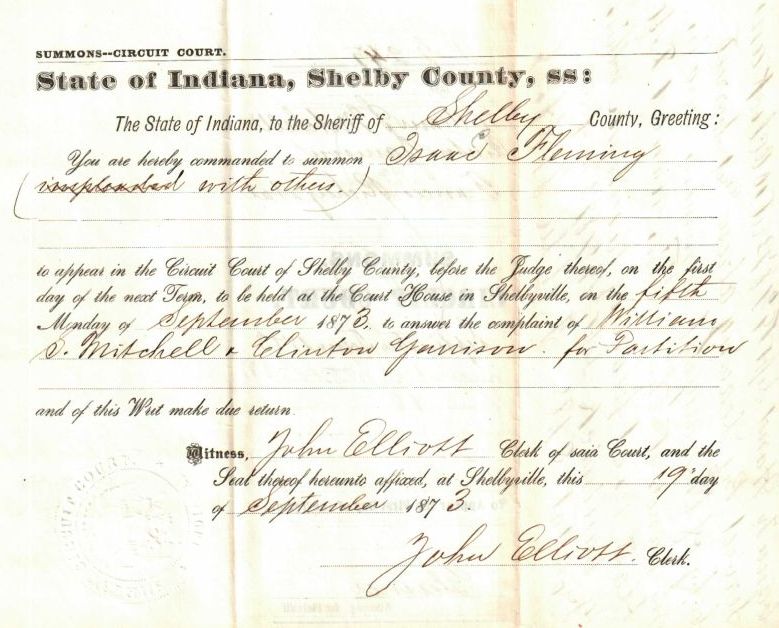 SUMMONS--CIRCUIT COURT.
State of Indiana, Shelby County, ss:
The State of Indiana, to the Sheriff of Shelby County, Greeting:
You are hereby commanded to summon Isaac Fleming
(impleaded with others.)
to appear in the Circuit Court of Shelby County, before the Judge thereof, on the first
day of the next Term, to be held at the Court House in Shelbyville, on the fifth
Monday of September 1873, to answer the complaint of William
S. Mitchell & Clinton Garrison for Partition
and of this Writ make due return.
Witness, John Elliott Clerk of said Court, and the
Seal thereof hereunto affixed, at Shelbyville, this 19" day
of September 1873.
John Elliott. Clerk.